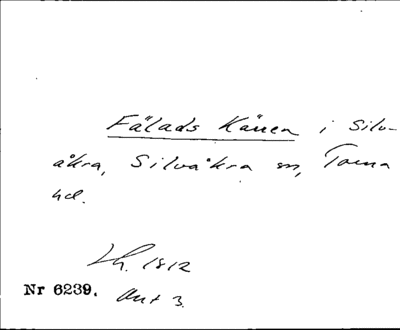 Fälads Kärren i Silv-
åkra, Silvåkra sn, Torna
hd.
Lh. 1812
Nr 6239. Akt 3.